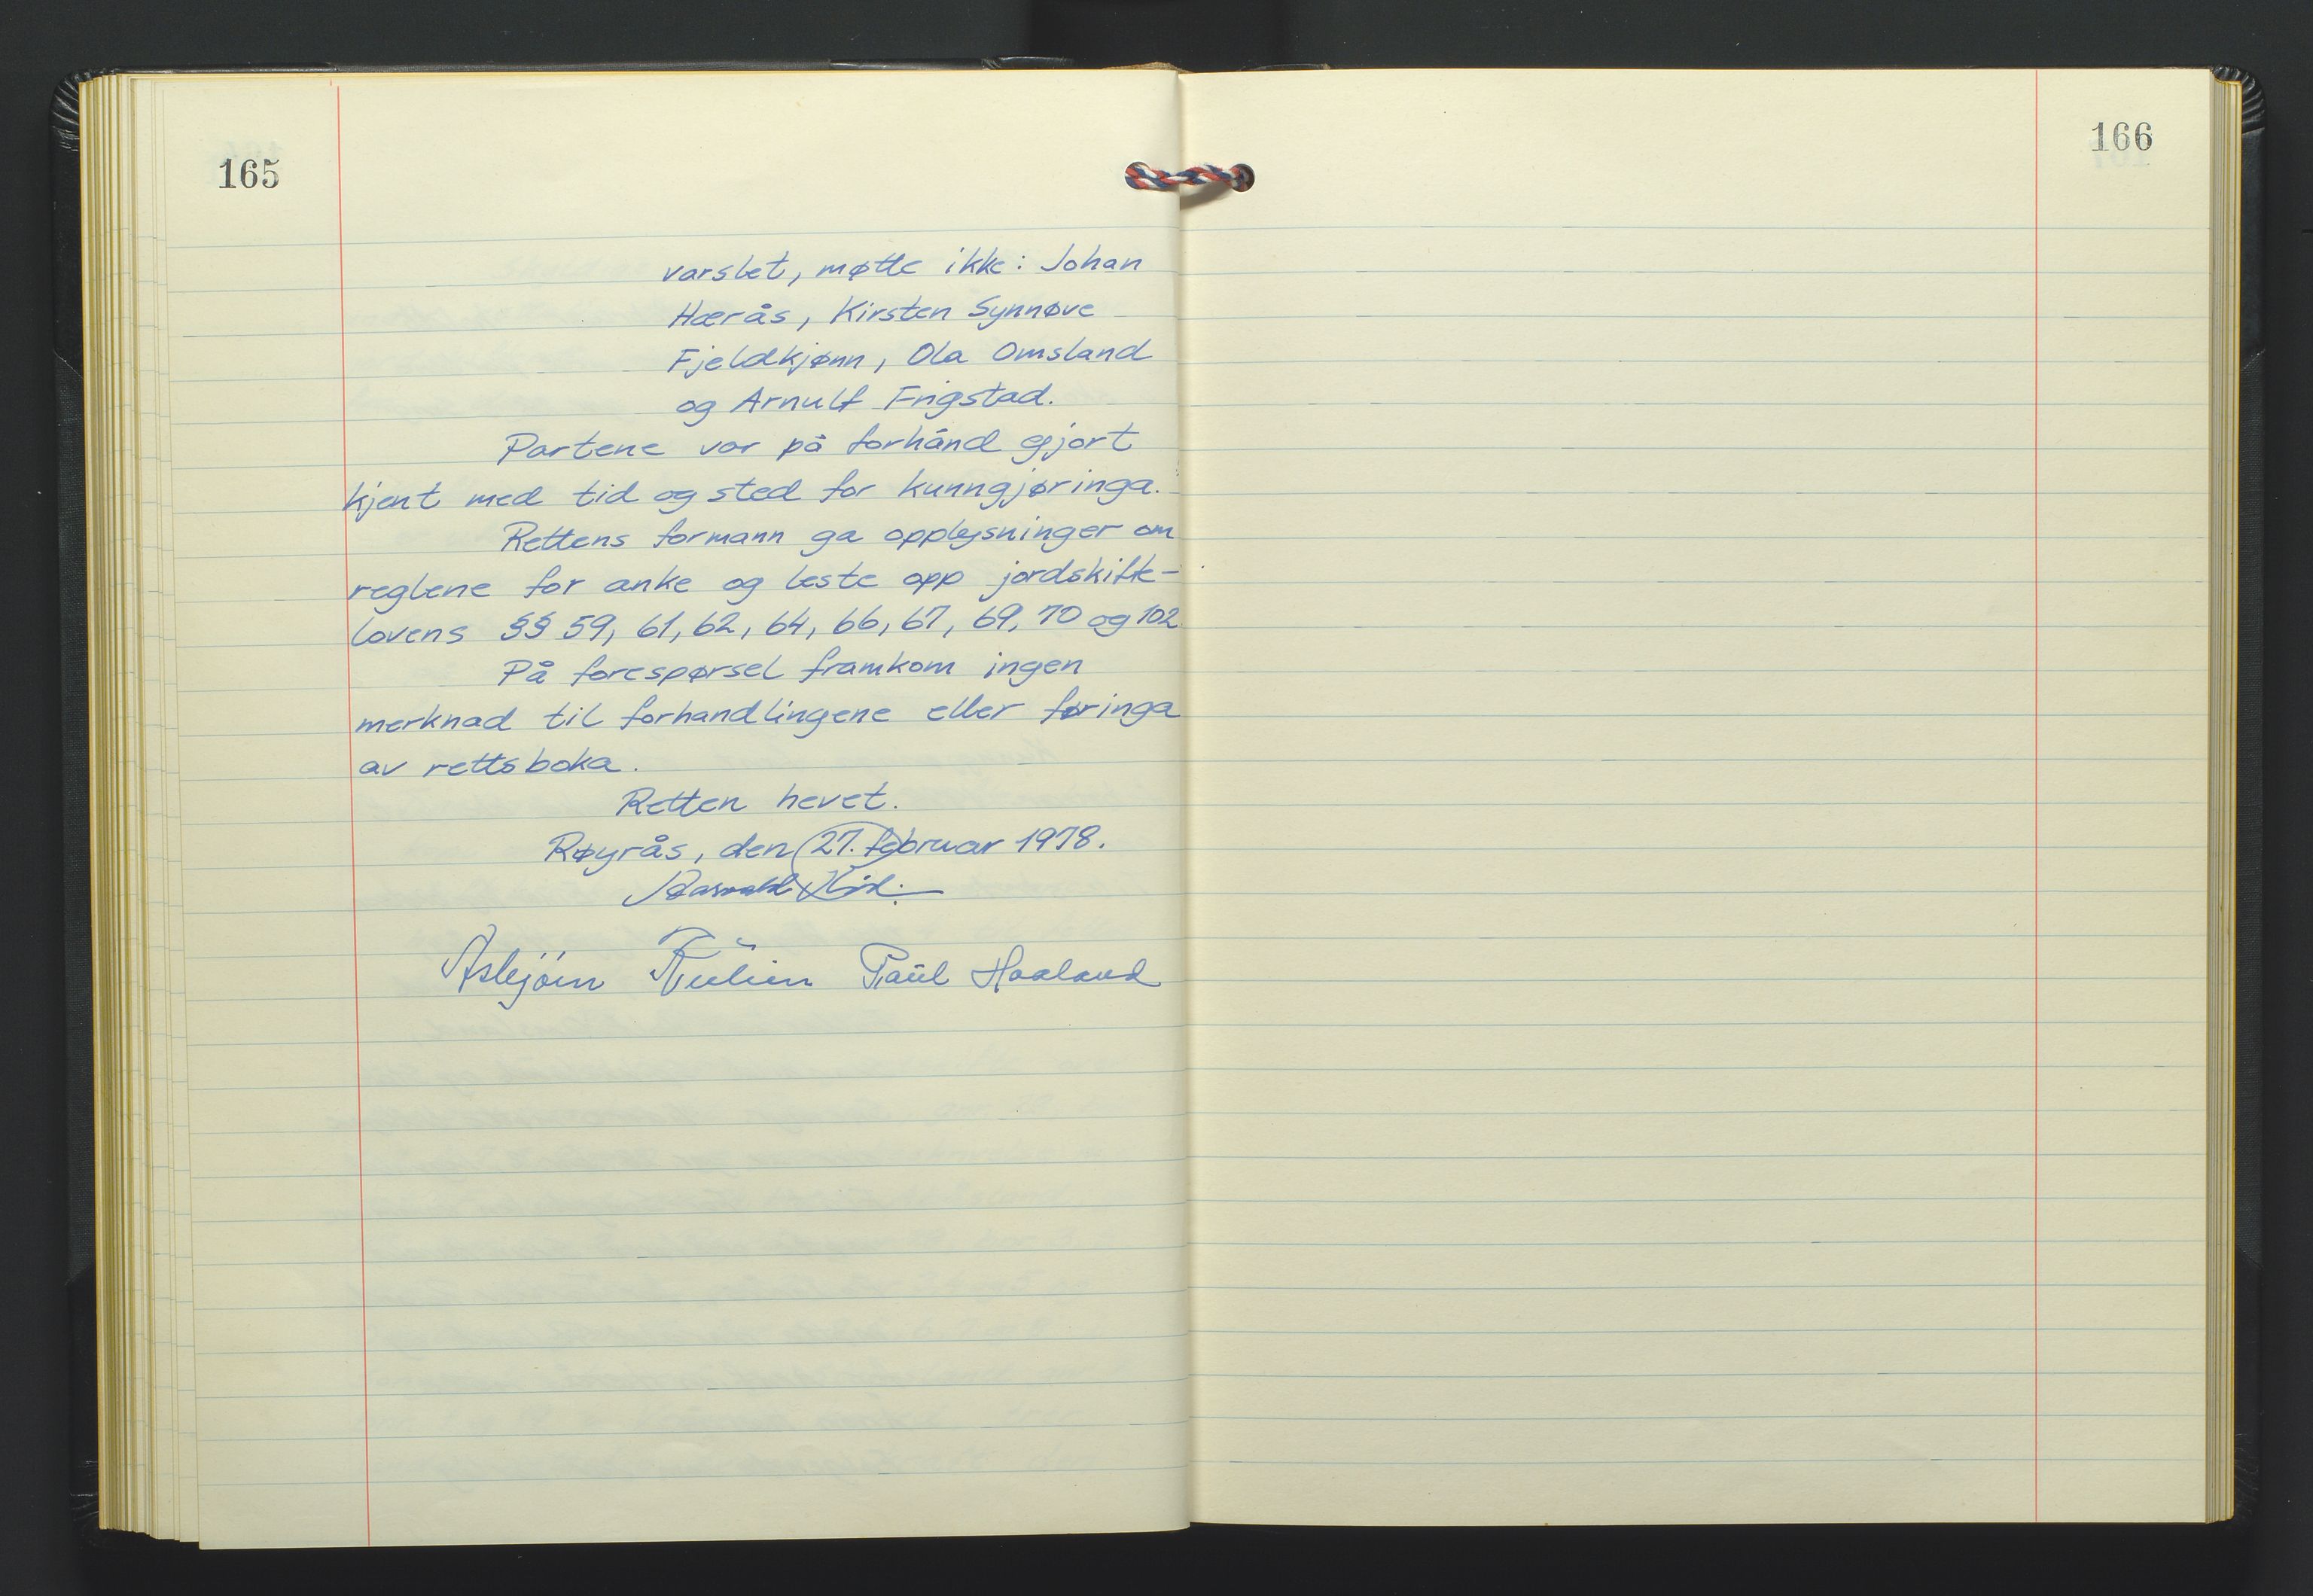 165
varslet, møtte ikke: Johan
Hærås, Kirsten Synnøve
Fjeldkjønn, Ola Omsland
og Arnulf Frigstad.
Partene var på forhånd gjort
kjent med tid og sted for kunngjøringa.
Rettens formann ga opplysninger om
reglene for anke og leste opp jordskifte-
lovens §§ 59, 61, 62, 64, 66, 67, 69, 70 og 102
På forespørsel framkom ingen
merknad til forhandlingene eller føringa
av rettsboka.
Retten hevet.
Røyrås, den 27. februar 1978.
Asbjörn Paul Haaland
166